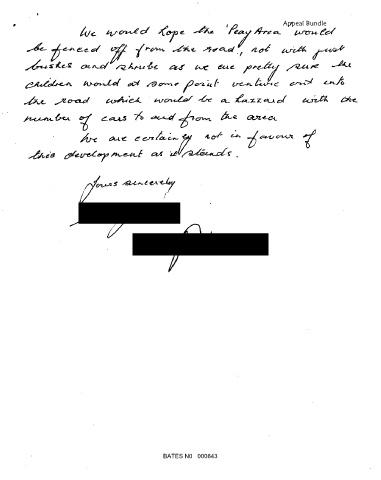 Appeal Bundle
We would hope the 'Play Area would
be fenced off from the road, not with just
bushes and shrubs as we are pretty sure the
children would at some point venture out into
the road which would be a hazzard with the
number of cars to and from the area
We are certainly not in favour of
this development as it stands.
Yours sincerely
BATES N0 000643